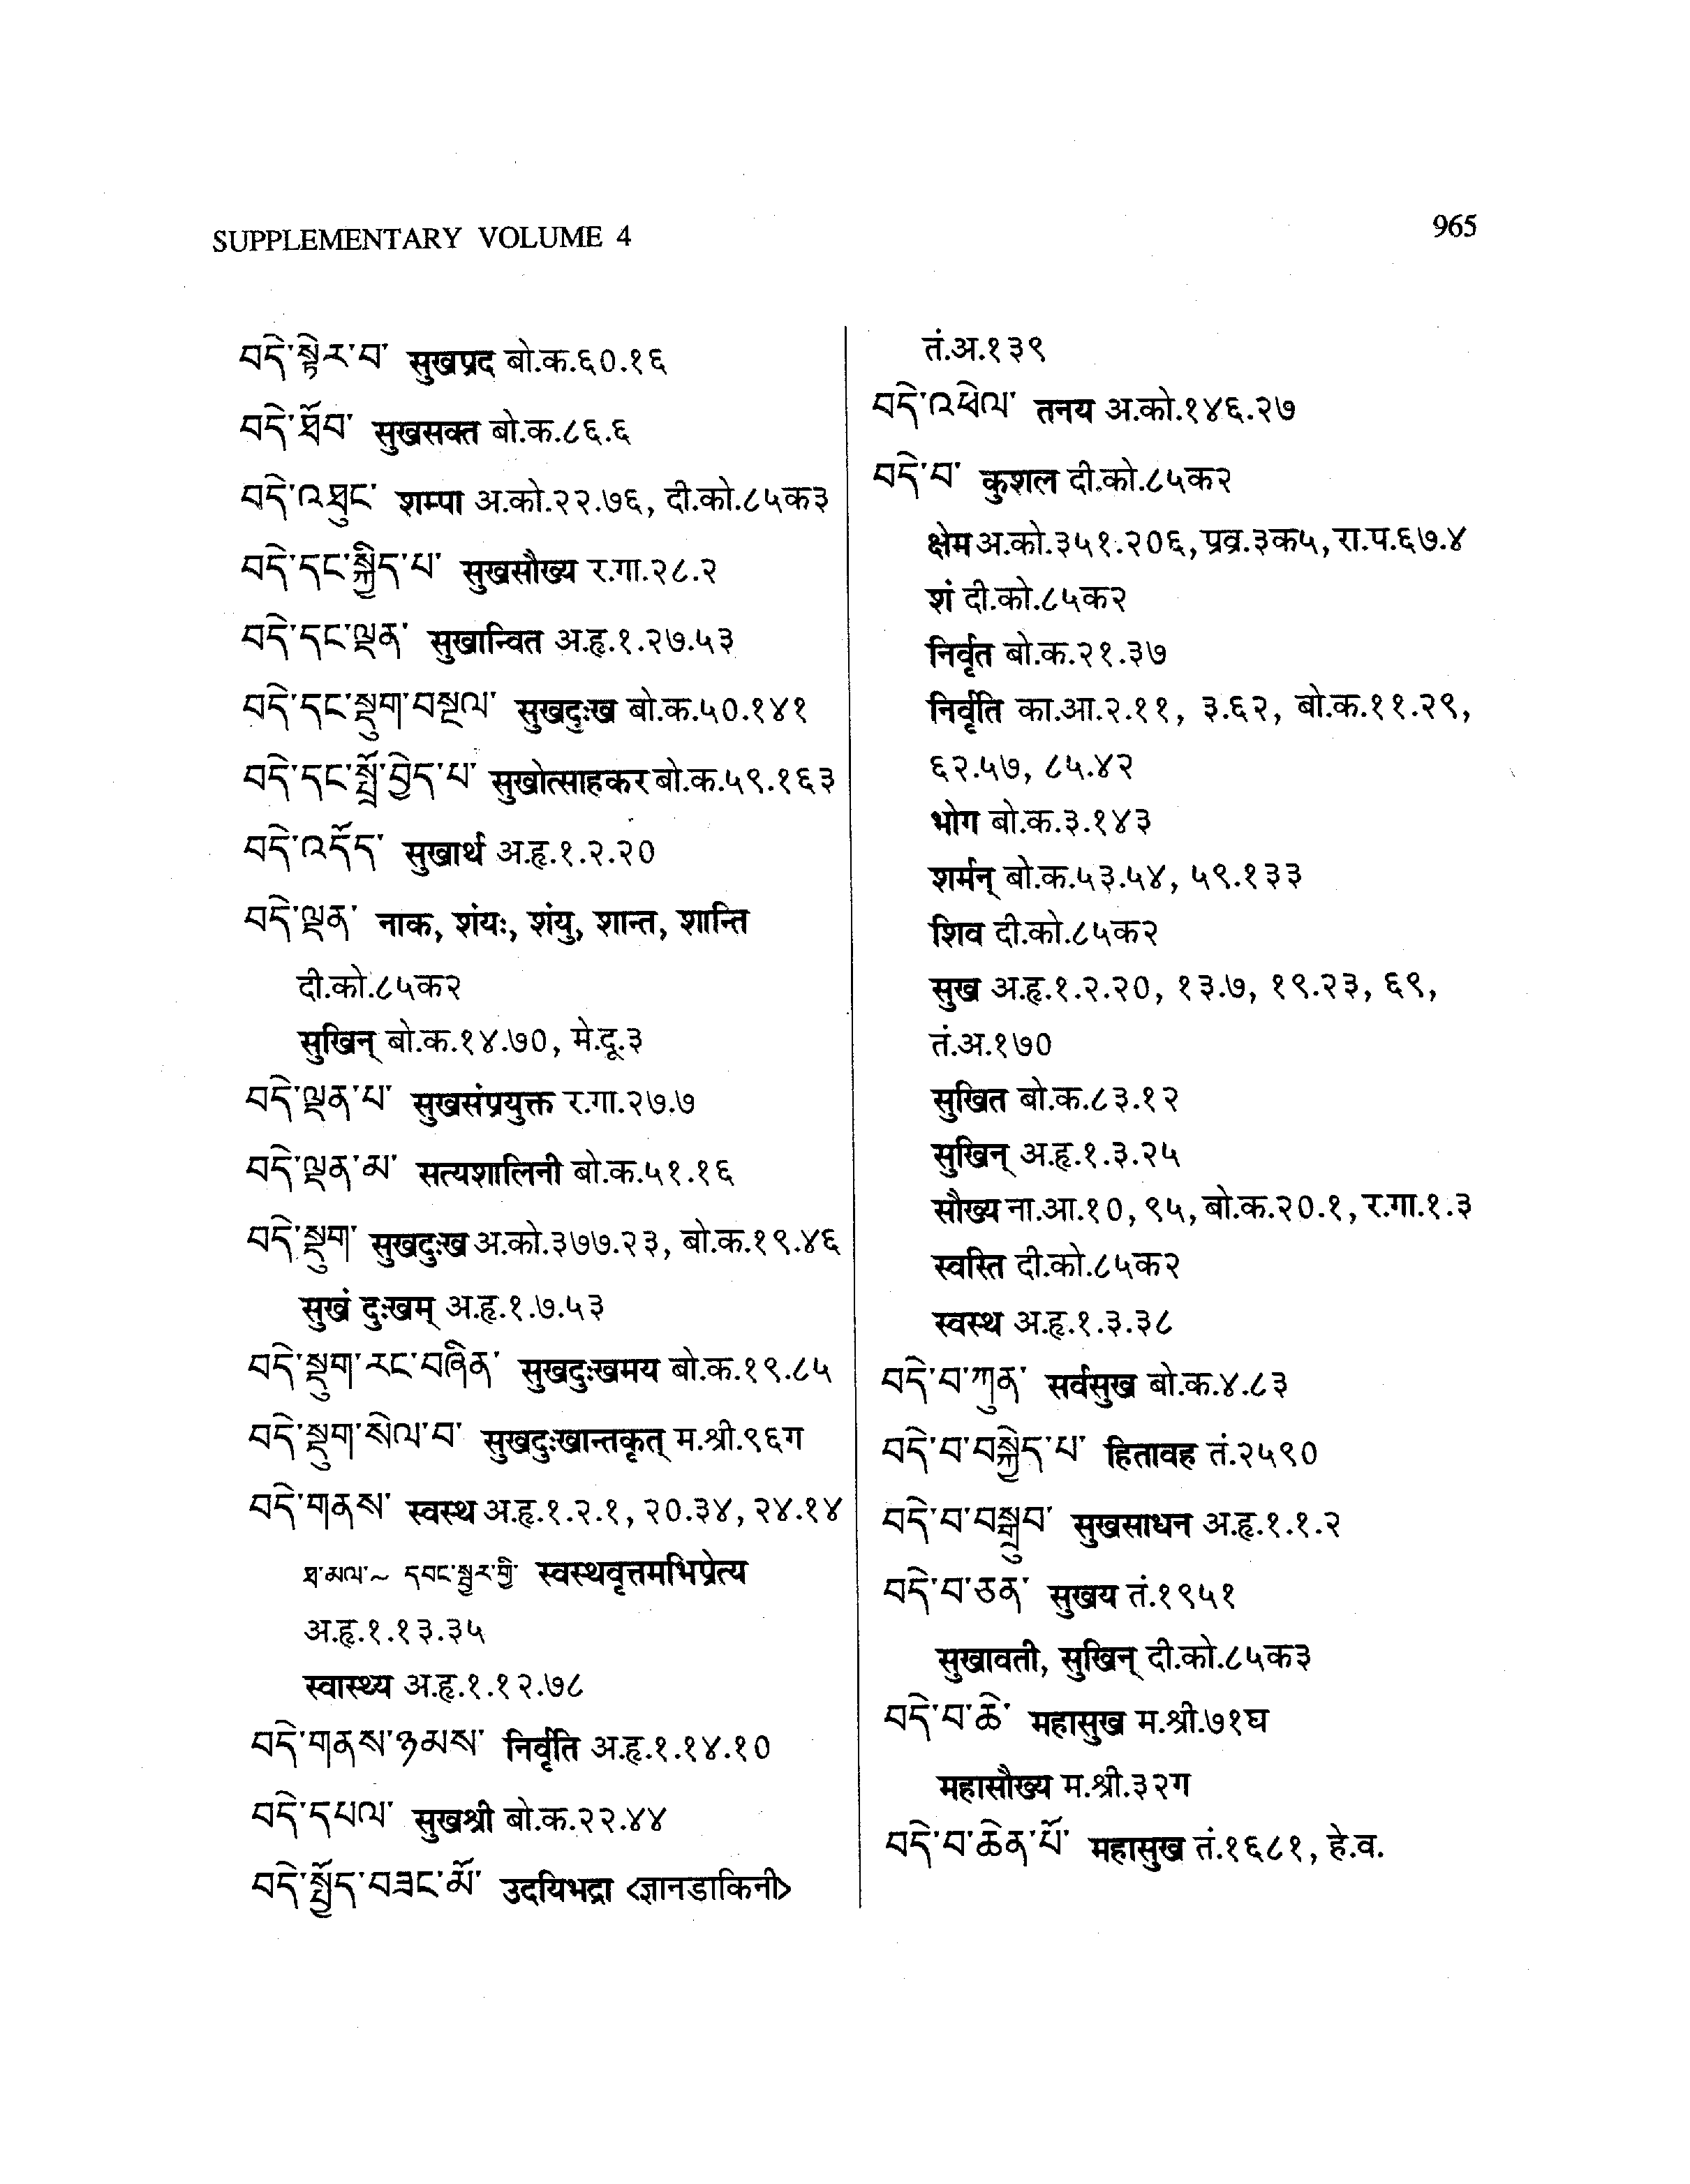 SUPPLEMENTARY VOLUME 4
965
བདེ་སྟེར་བ་ सुखप्रद बो.क.६०.१६
བདེ་ཐོབ་ सुखसक्त बो.क.८६.६
བདེ་འཐུང་ शम्पा अ.को.२२.७६, दी.को.८५क३
བདེ་དང་སྐྱིད་པ་ सुखसौख्य र.गा.२८.२
བདེ་དང་ལྡན་ सुखान्वित अ.हृ.१.२७.५३
བདེ་དང་སྡུག་བསྔལ་ सुखदुःख बो.क.५०.१४१
བདེ་དང་སྤྲོ་བྱེད་པ་ सुखोत्साहकर बो.क.५९.१६३
བདེ་འདོད་ सुखार्थ अ.हृ.१.२.२०
བདེ་ལྡན་ नाक, शंयः, शंयु, शान्त, शान्ति
दी.को.८५क२
सुखिन् बो.क.१४.७०, मे.दू.३
བདེ་ལྡན་པ་ सुखसंप्रयुक्त र.गा.२७.७
བདེ་ལྡན་མ་ सत्यशालिनी बो.क.५१.१६
བདེ་སྡུག་ सुखदुःख अ.को.३७७.२३, बो.क.१९.४६
सुखं दुःखम् अ.हृ.१.७.५३
བདེ་སྡུག་རང་བཞིན་ सुखदुःखमय बो.क.१९.८५
བདེ་སྡུག་སེལ་བ་ सुखदुःखान्तकृत् म.श्री.९६ग
བདེ་གནས་ स्वस्थ अ.हृ.१.२.१, २०.३४, २४.१४
ཐ་མལ་~ དབང་སྦྱར་གྱི་ स्वस्थवृत्तमभिप्रेत्य
अ.हृ.१.१३.३५
स्वास्थ्य अ.हृ.१.१२.७८
བདེ་གནས་ཉམས་ निर्वृति अ.हृ.१.१४.१०
བདེ་དཔལ་ सुखश्री बो.क.२२.४४
བདེ་སྤྱོད་བཟང་མོ་ उदयिभद्रा <ज्ञानडाकिनी>
तं.अ.१३९
བདེ་འཕེལ་ तनय अ.को.१४६.२७
བདེ་བ་ कुशल दी.को.८५क२
क्षेम अ.को.३५१.२०६, प्रव्र.३क५, रा.प.६७.४
शं दी.को.८५क२
निर्वृत बो.क.२१.३७
निर्वृति का.आ.२.११, ३.६२, बो.क.११.२९,
६२.५७, ८५.४२
भोग बो.क.३.१४३
शर्मन् बो.क.५३.५४, ५९.१३३
शिव दी.को.८५क२
सुख अ.हृ.१.२.२०, १३.७, १९.२३, ६९,
तं.अ.१७०
सुखित बो.क.८३.१२
सुखिन् अ.हृ.१.३.२५
सौख्य ना.आ.१०, ९५, बो.क.२०.१, र.गा.१.३
स्वस्ति दी.को.८५क२
स्वस्थ अ.हृ.१.३.३८
བདེ་བ་ཀུན་ सर्वसुख बो.क.४.८३
བདེ་བ་བསྐྱེད་པ་ हितावह तं.२५९०
བདེ་བ་བསྒྲུབ་ सुखसाधन अ.हृ.१.१.२
བདེ་བ་ཅན་ सुखय तं.१९५१
सुखावती, सुखिन् दी.को.८५क३
བདེ་བ་ཆེ་ महासुख म.श्री.७१घ
महासौख्य म.श्री.३२ग
བདེ་བ་ཆེན་པོ་ महासुख तं.१६८१, हे.व.